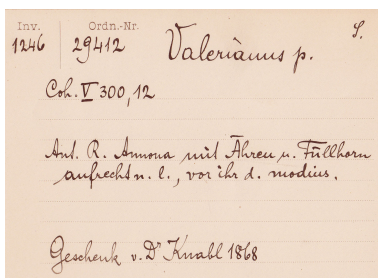 Inv. Ordn.-Nr.
1246 29412 Valerianus p. S.
Coh. V 300, 12
Ant. R. Annona mit Ähren u. Füllhorn
aufrecht n. l., vor ihr d. modius.
Geschenk v. Dr Knabl 1868